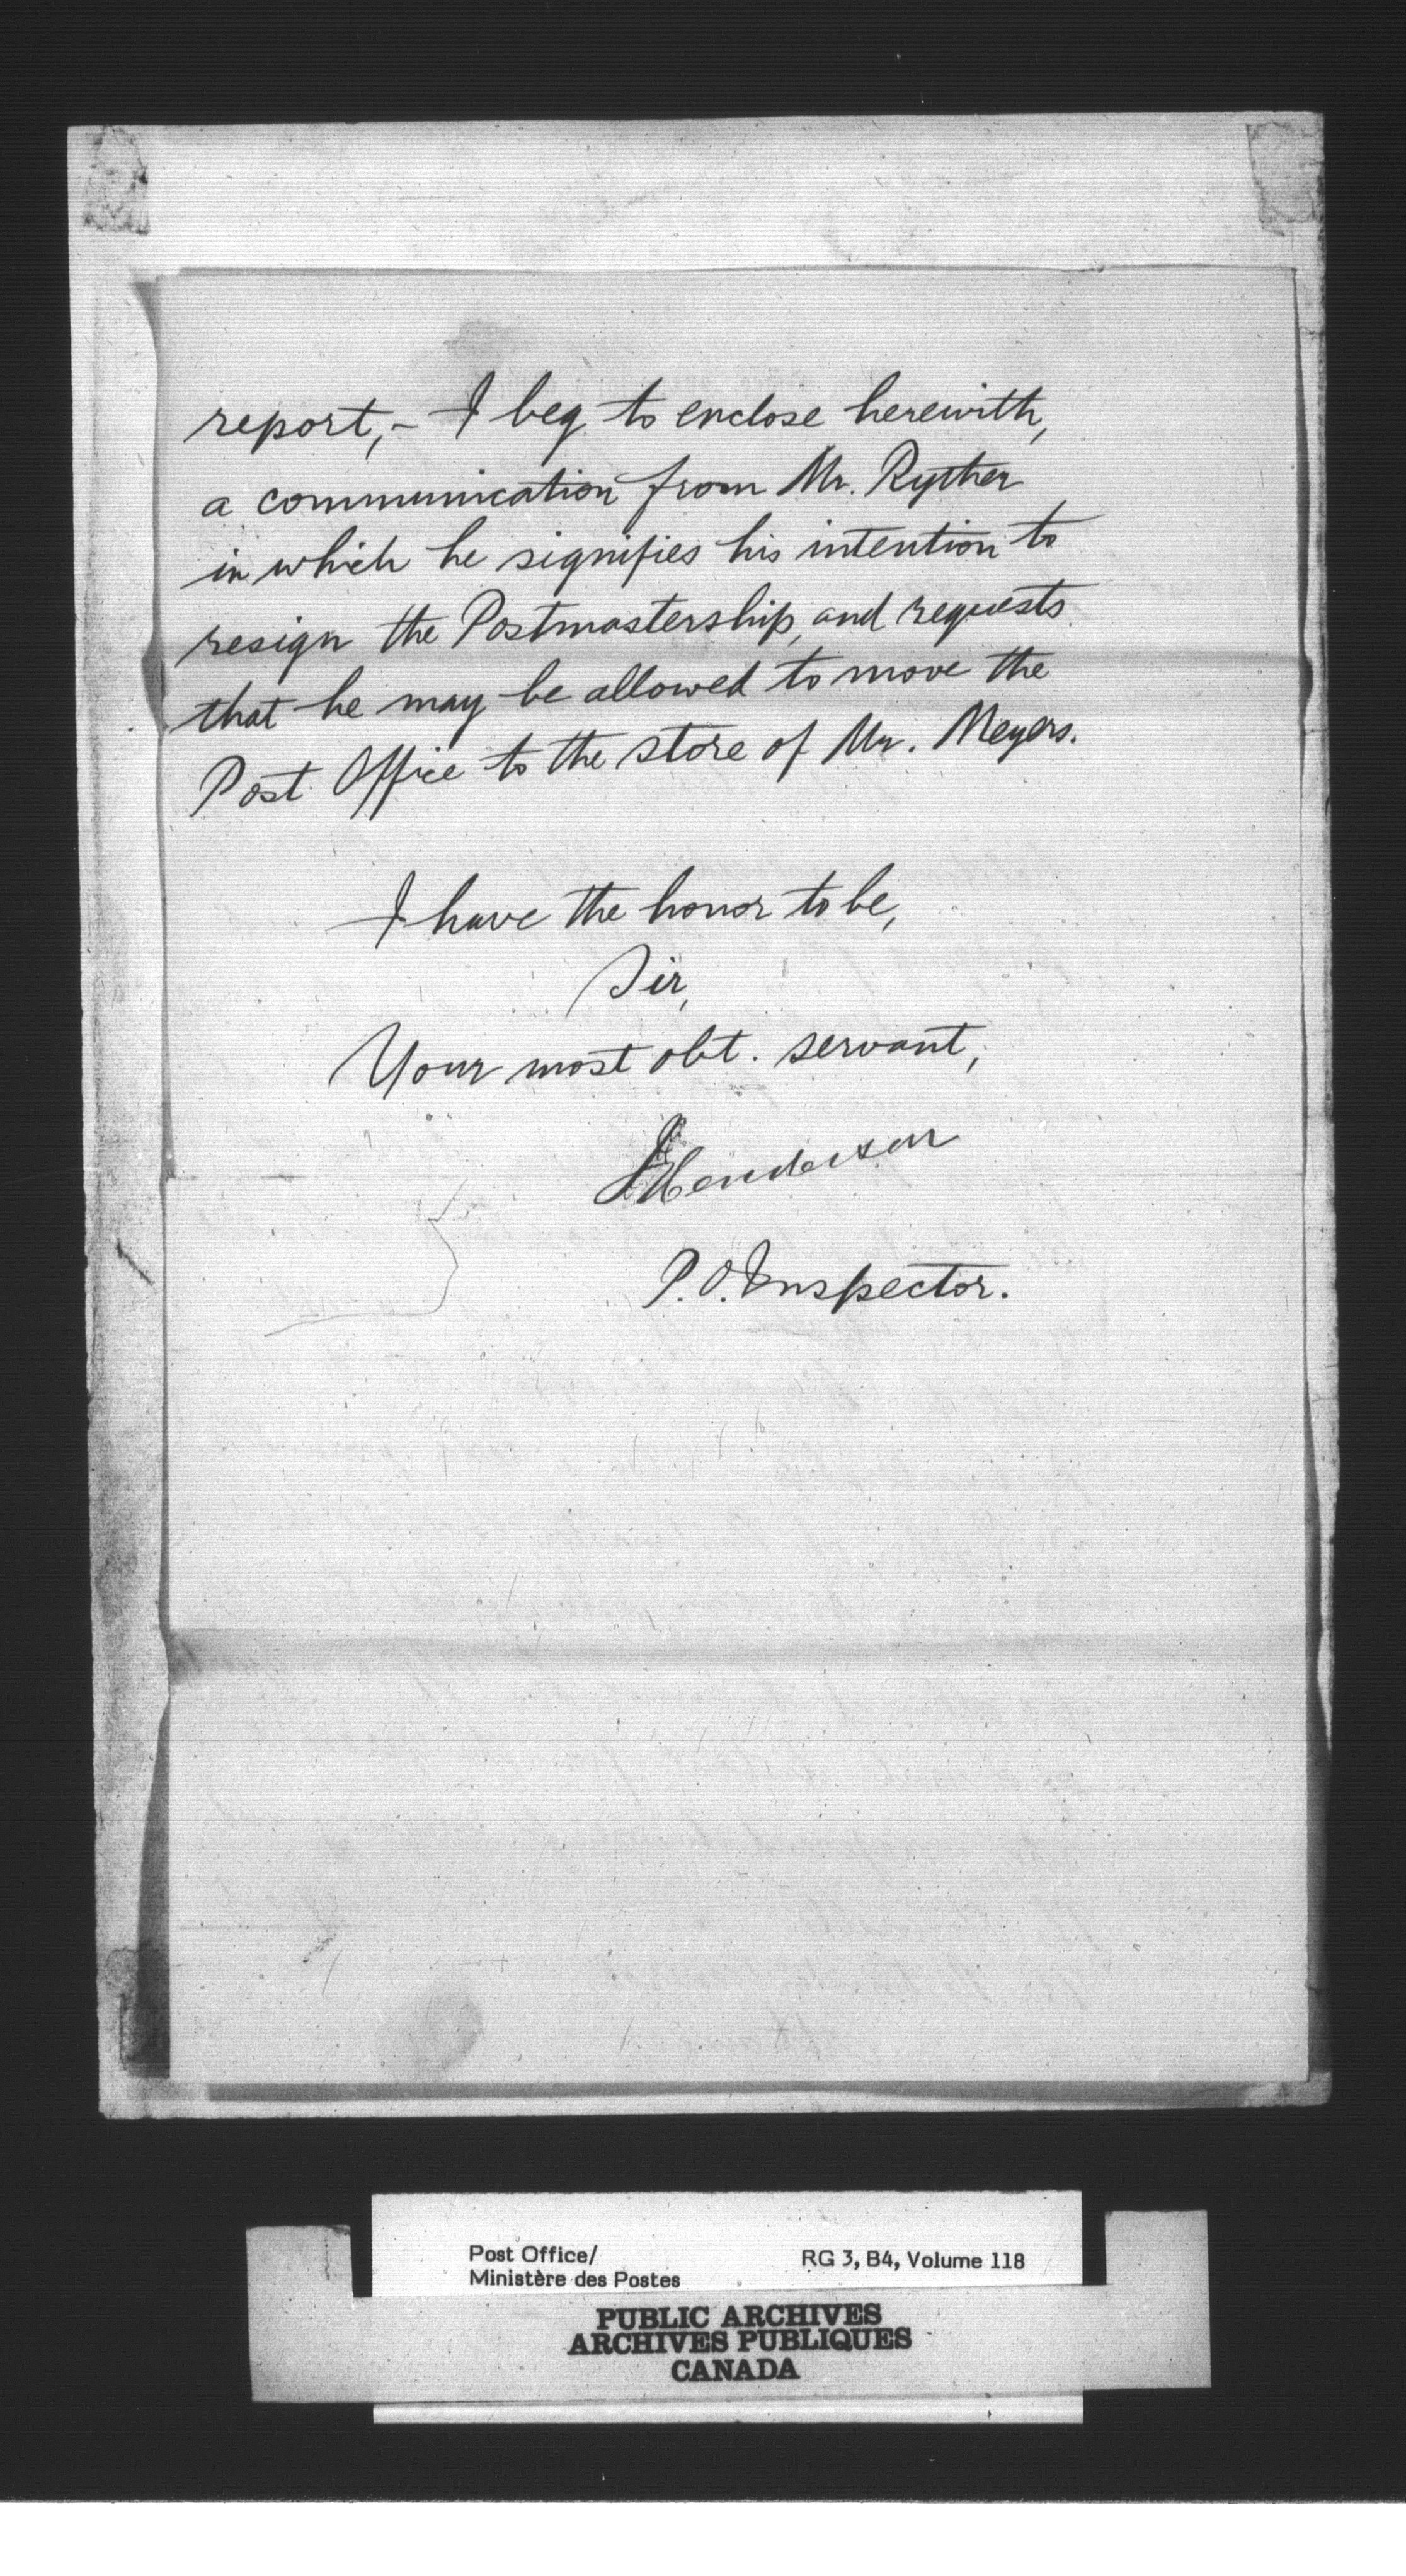 report,- I beg to enclose herewith,
a communication from Mr. Ryther
in which he signifies his intention to
resign the Postmastership, and requests
that he may be allowed to move the
Post Office to the store of Mr. Meyers.
I have the honor to be,
Sir,
Your most obt. servant,
Henderson
P.O. Inspector.
Post Office/
Ministère des Postes
RG 3, B4, Volume 118
PUBLIC ARCHIVES
ARCHIVES PUBLIQUES
CANADA